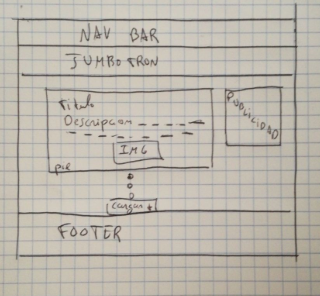 NAV BAR
JUMBOTRON
Titulo
Descripcion
IMG
pie
PUBLICIDAD
cargar +
FOOTER